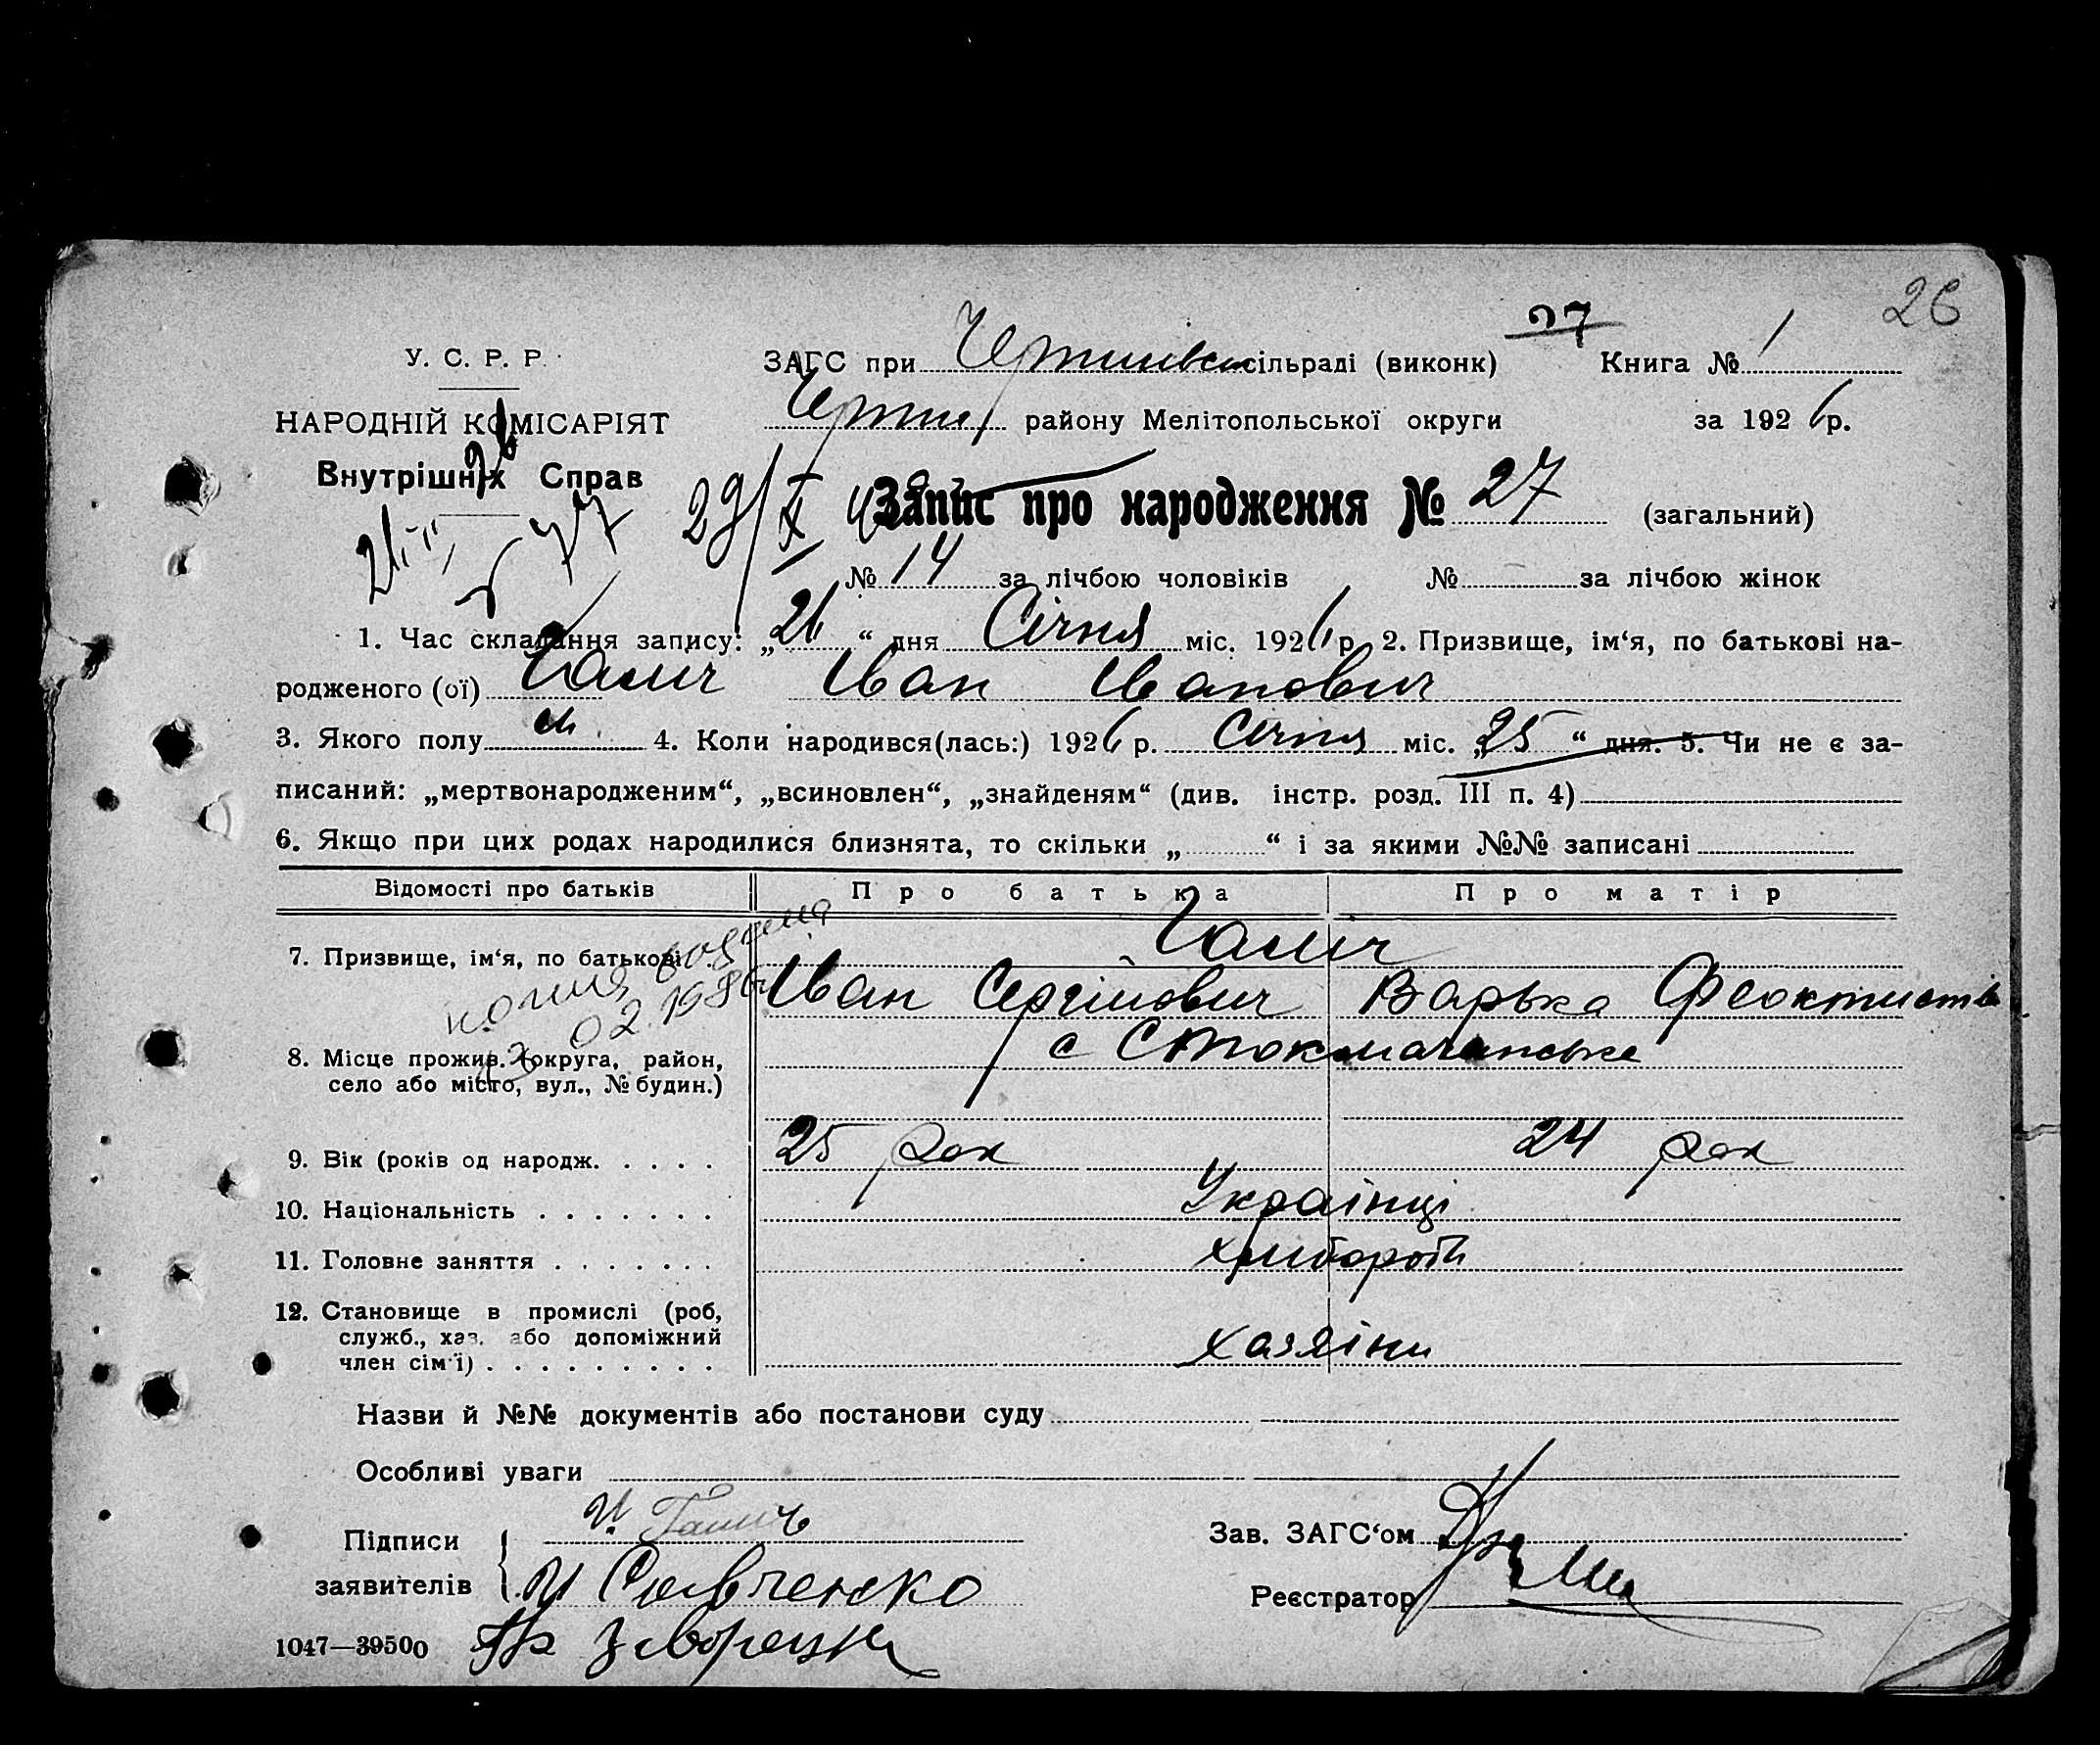 27 26
У. С. Р. Р. ЗАГС при сільраді (виконк) Книга № 1
НАРОДНІЙ КОМІСАРІЯТ району Мелітопольської округи за 1926 р.
Внутрішніх Справ
23/X Запис про народження № 27 (загальний)
№ 14 за лічбою чоловіків № за лічбою жінок
1. Час складання запису: „26“ дня Січня міс. 1926 р. 2. Призвище, ім‘я, по батькові на-
родженого (ої) Галич Іван Іванович
3. Якого полу ч. 4. Коли народився(лась:) 1926 р. Січня міс. „25“ дня. 5. Чи не є за-
писаний: „мертвонародженим“, „всиновлен“, „знайденям“ (див. інстр. розд. III п. 4)
6. Якщо при цих родах народилися близнята, то скільки „ “ і за якими №№ записані
Відомості про батьків Про батька Про матір
7. Призвище, ім‘я, по батькові Галич
Іван Сергійович Варька Феоктистів
копия выдана
02.1986
8. Місце прожив. (округа, район,
село або місто, вул., № будин.)
с Стокмачанське
9. Вік (років од народж. . . . . 25 рок 24 рок
10. Національність . . . . . . . Українці
11. Головне заняття . . . . . . . хлібороби
12. Становище в промислі (роб,
служб., хаз. або допоміжний
член сім‘ї) . . . . . . . . . хазяїни
Назви й №№ документів або постанови суду
Особливі уваги
Підписи И. Галичь Зав. ЗАГС‘ом
заявителів И Савченко Реєстратор
1047—39500